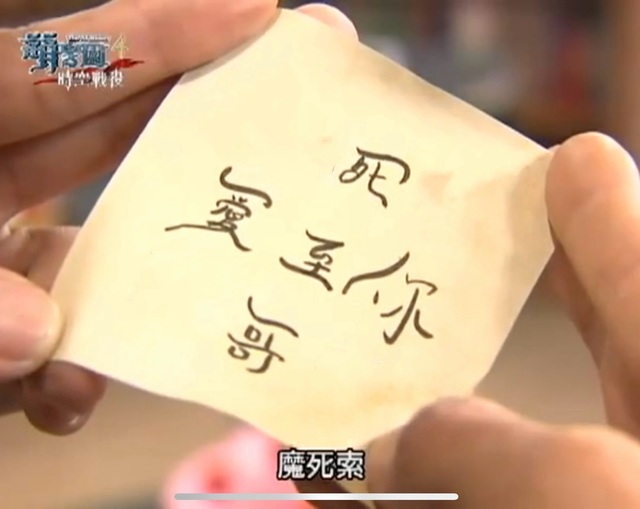 萌學園4
時空戰役
死
愛至你
哥
魔死索